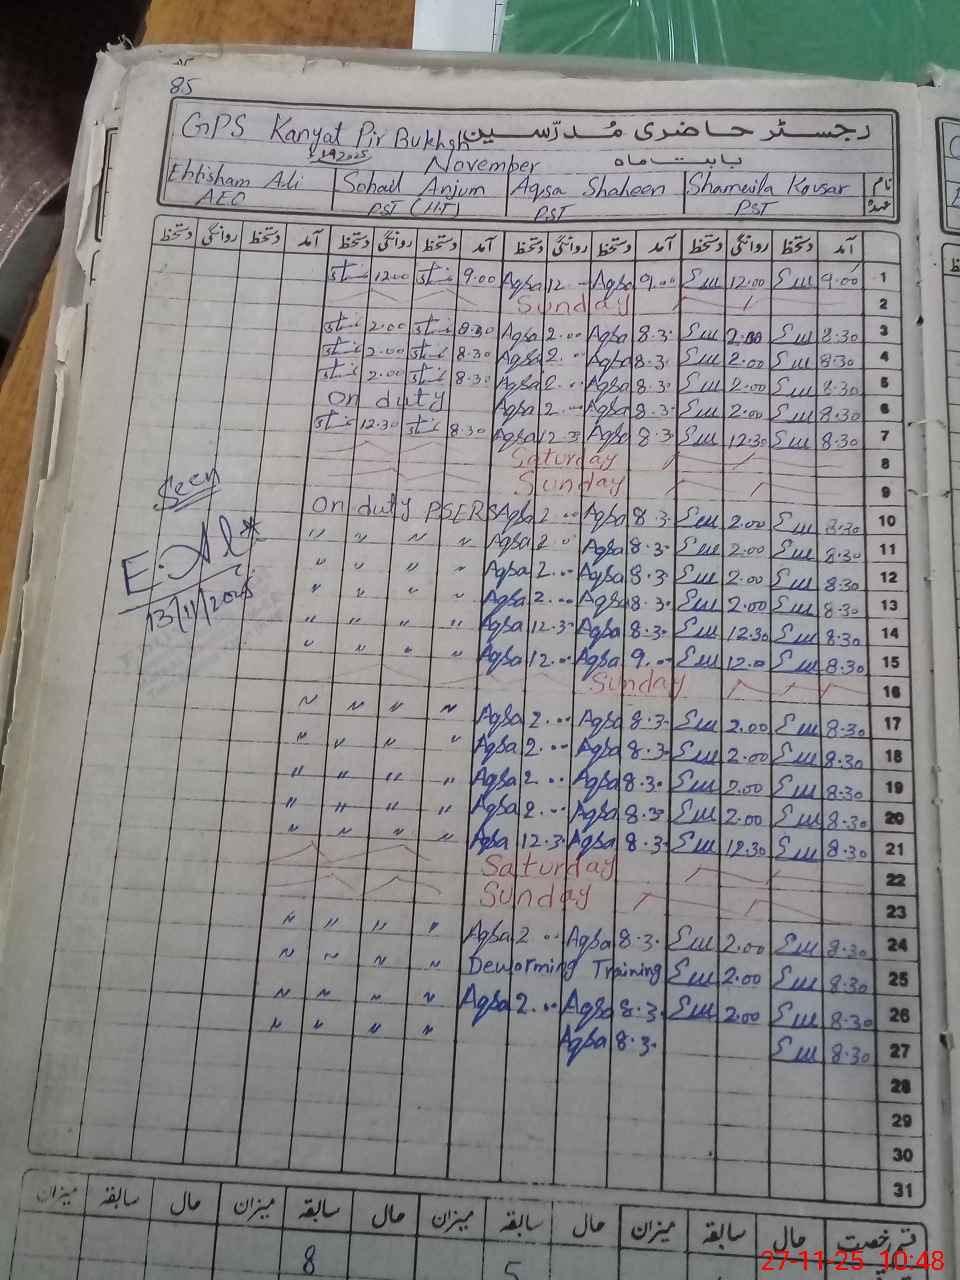 85
GPS Kanyat Pir Bukhsh رجسٹر حاضری مُدرّسین
November بابت ماہ
Ehtisham Ali Sohail Anjum Aqsa Shaheen Shameila Kousar نام
AEO PST (HT) PST PST عہدہ
آمد دستخط روانگی دستخط آمد دستخط روانگی دستخط آمد دستخط روانگی دستخط آمد دستخط روانگی دستخط
1 9.00 12.00 9.00 Aqsa 12.00 Aqsa 9.00 12.00
2 Sunday
3 8.30 2.00 8.3. Aqsa 2.00 Aqsa 8.30 2.00
4 8.30 2.00 8.3. Aqsa 2.00 Aqsa 8.30 2.00
5 8.30 2.00 8.3. Aqsa 2.00 Aqsa 8.30 2.00
6 8.30 2.00 8.3. Aqsa 2.00 Aqsa On duty
7 8.30 12.30 8.3. Aqsa 12.3. Aqsa 8.30 12.30
8 Saturday
9 Sunday
On duty PSERS Aqsa 2.00 Aqsa 8.3. 2.00 8.30 10
" " " " Aqsa 2.00 Aqsa 8.3. 2.00 8.30 11
" " " " Aqsa 2.00 Aqsa 8.3. 2.00 8.30 12
" " " " Aqsa 2.00 Aqsa 8.3. 2.00 8.30 13
" " " " Aqsa 12.3. Aqsa 8.3. 12.30 8.30 14
" " " " Aqsa 12.00 Aqsa 9.00 12.00 8.30 15
Sunday 16
" " " " Aqsa 2.00 Aqsa 8.3. 2.00 8.30 17
" " " " Aqsa 2.00 Aqsa 8.3. 2.00 8.30 18
" " " " Aqsa 2.00 Aqsa 8.3. 2.00 8.30 19
" " " " Aqsa 2.00 Aqsa 8.3. 2.00 8.30 20
" " " " Aqsa 12.3. Aqsa 8.3. 12.30 8.30 21
Saturday 22
Sunday 23
" " " " Aqsa 2.00 Aqsa 8.3. 2.00 8.30 24
" " " " Deworming Training 2.00 8.30 25
" " " " Aqsa 2.00 Aqsa 8.3. 2.00 8.30 26
" " " " Aqsa 8.3. 8.30 27
28
29
30
31
Seen
E.Ali
13/11/2025
قسم رخصت حال سابقہ میزان حال سابقہ میزان حال سابقہ میزان حال سابقہ میزان
8 5
27-11-25 10:48